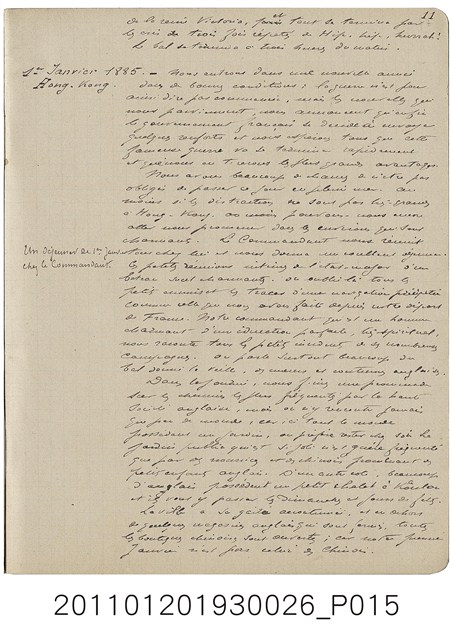 11
de la reine Victoria, puis tout se termine par
les cris de trois fois répétés de Hip, hip, hurrah!
Le bal se termine à trois heures du matin.
1er Janvier 1885. — Nous entrons dans une nouvelle année
Hong-Kong.
dans de bonnes conditions: la guerre n'est pour
ainsi dire pas commencée, mais les nouvelles qui
nous parviennent, nous annoncent qu'enfin
le gouvernement français se décide à envoyer
quelques renforts et nous espérons tous que cette
fameuse guerre va se terminer rapidement
et que nous en tirerons les plus grands avantages.
Nous avons beaucoup de chance de n'être pas
obligés de passer ce jour en pleine mer. Au
moins si les distractions ne sont pas très grandes
à Hong-Kong, au moins pouvons-nous encore
aller nous promener dans les environs qui sont
charmants. Le Commandant nous réunit
Un déjeuner du 1er Janvier
chez le Commandant.
tous chez lui et nous donne un excellent déjeuner.
Ces petites réunions intimes de l'état-major d'un
bateau sont charmantes. On oublie là tous les
petits ennuis et les tracas d'une navigation précipitée
comme celle que nous avons faite depuis notre départ
de France. Notre commandant qui est un homme
charmant d'une éducation parfaite, très spirituel,
nous raconte tous les petits incidents de ses nombreuses
campagnes. On parle surtout beaucoup du
bal donné la veille, des mœurs et coutumes anglaises.
Dans la journée, nous faisons une promenade
sur les chemins les plus fréquentés par la haute
société anglaise, mais on n'y rencontre jamais
que peu de monde, car ici tout le monde
possédant un jardin, on préfère rester chez soi. Le
jardin public qui est si joli n'est guère fréquenté
que par des bonnes et des chinois promenant de
petits enfants anglais. D'un autre côté, beaucoup
d'anglais possèdent un petit chalet à Kowloon
et vont y passer les Dimanches et jours de fête.
La ville a sa gaité accoutumée, et en dehors
de quelques magasins anglais qui sont fermés, toutes
les boutiques chinoises sont ouvertes; car notre premier
Janvier n'est pas celui des Chinois.
201101201930026_P015